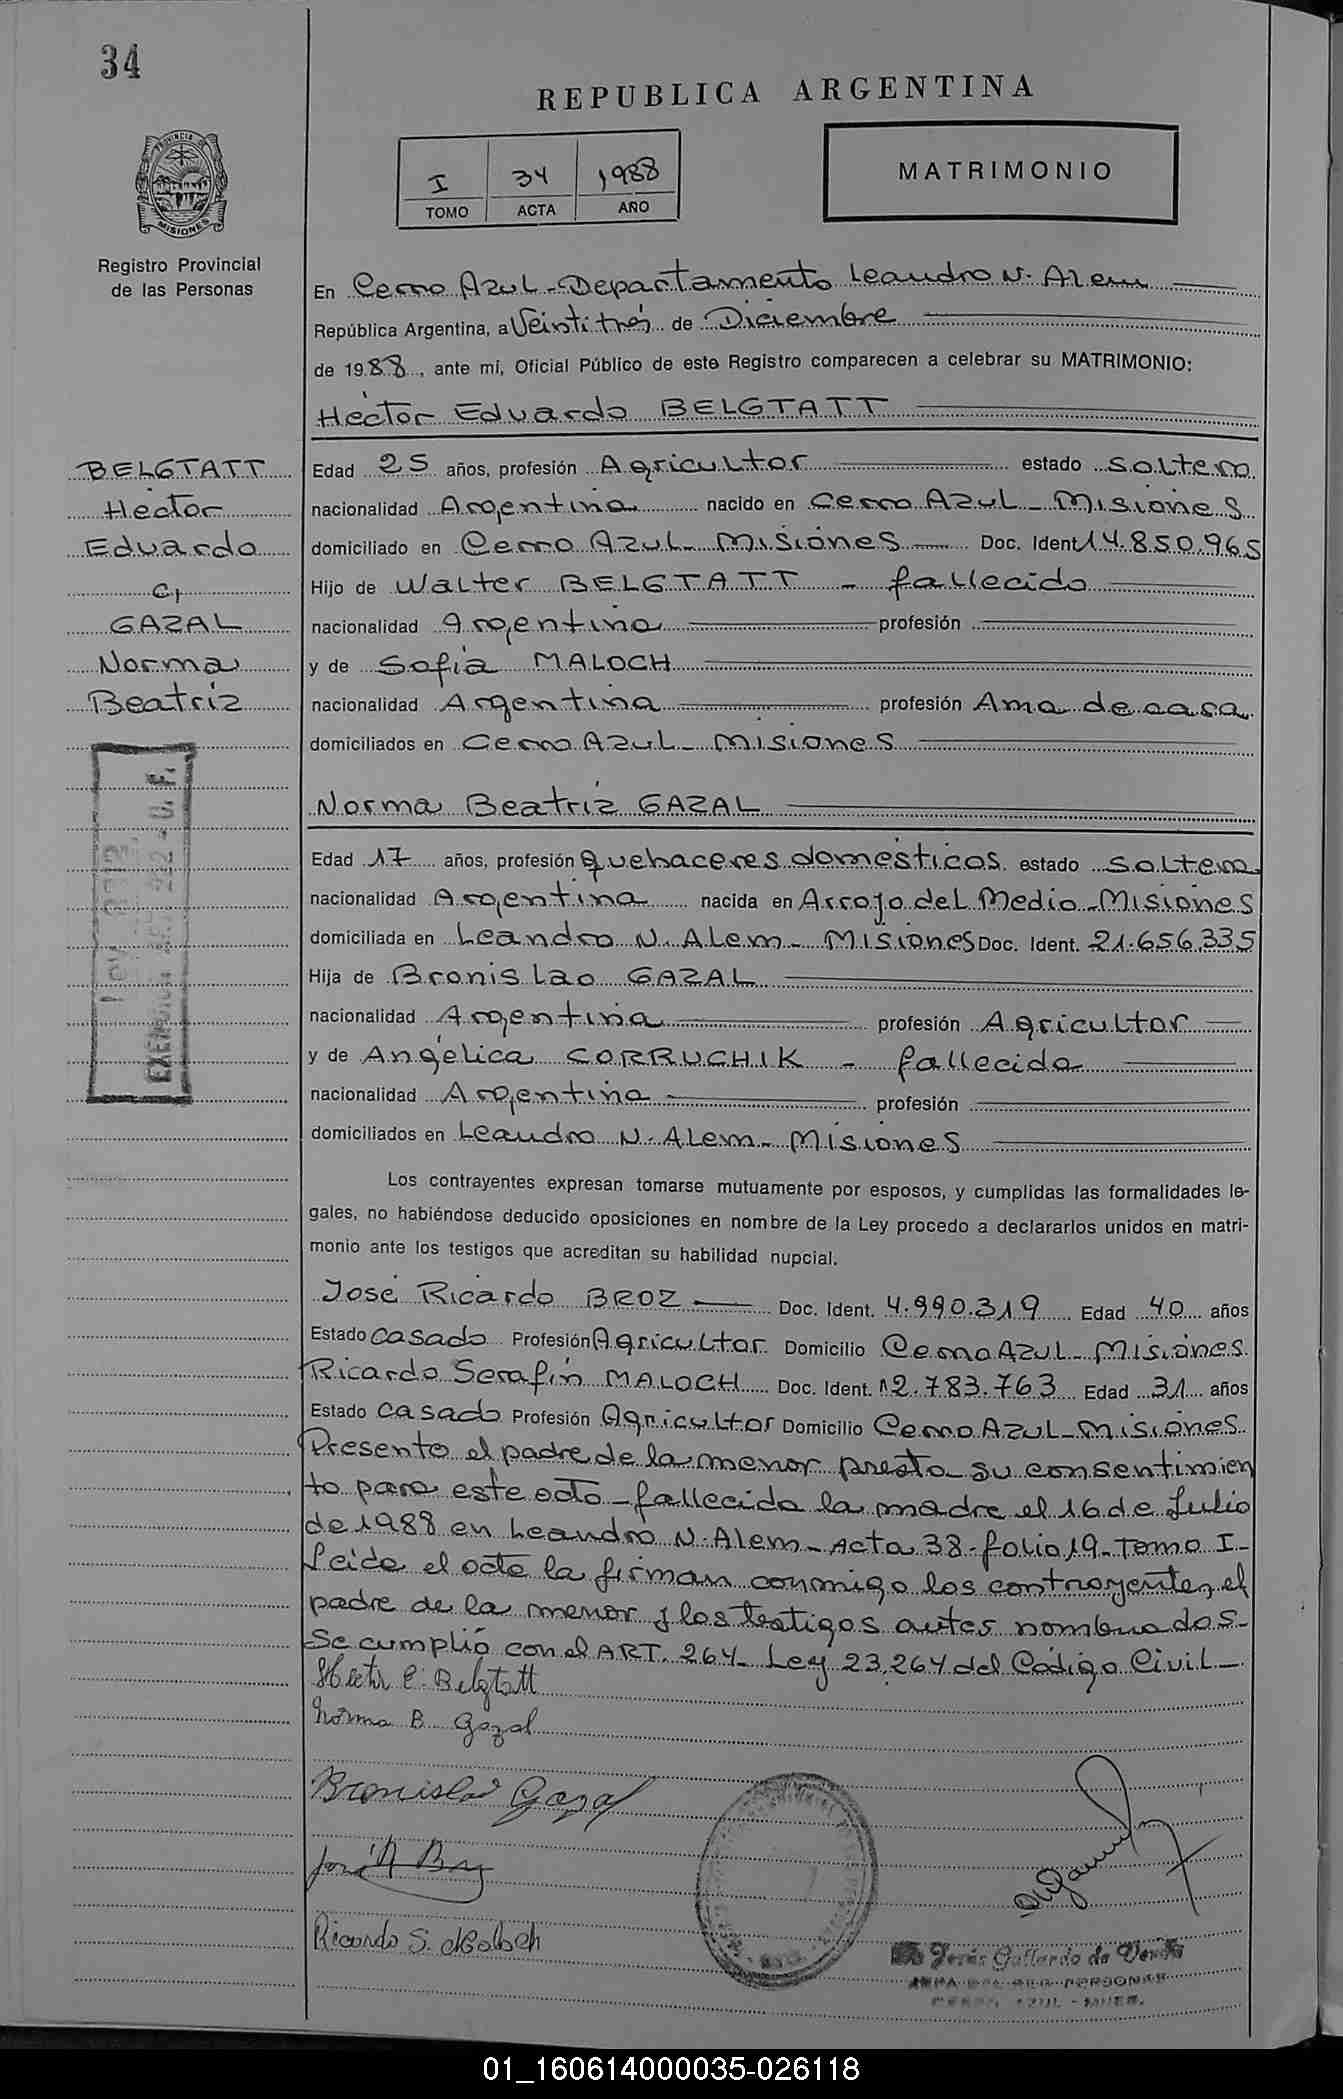 34
REPUBLICA ARGENTINA
I 34 1988
TOMO ACTA AÑO
MATRIMONIO
PROVINCIA
MISIONES
Registro Provincial
de las Personas
En Cerro Azul - Departamento Leandro N. Alem
República Argentina, a Veintitrés de Diciembre
de 1988, ante mí, Oficial Público de este Registro comparecen a celebrar su MATRIMONIO:
Héctor Eduardo BELGTATT
BELGTATT
Héctor
Eduardo
c/
GAZAL
Norma
Beatriz
Edad 25 años, profesión Agricultor estado soltero
nacionalidad Argentina nacido en Cerro Azul - Misiones
domiciliado en Cerro Azul - Misiones Doc. Ident. 14.850.965
Hijo de Walter BELGTATT - fallecido
nacionalidad Argentina profesión
y de Sofia MALOCH
nacionalidad Argentina profesión Ama de casa
domiciliados en Cerro Azul - Misiones
Norma Beatriz GAZAL
Edad 17 años, profesión quehaceres domésticos estado soltera
nacionalidad Argentina nacida en Arroyo del Medio - Misiones
domiciliada en Leandro N. Alem - Misiones Doc. Ident. 21.656.335
Hija de Bronislao GAZAL
nacionalidad Argentina profesión Agricultor
y de Angélica CORRUCHIK - fallecida
nacionalidad Argentina profesión
domiciliados en Leandro N. Alem - Misiones
Los contrayentes expresan tomarse mutuamente por esposos, y cumplidas las formalidades le-
gales, no habiéndose deducido oposiciones en nombre de la Ley procedo a declararlos unidos en matri-
monio ante los testigos que acreditan su habilidad nupcial.
José Ricardo BROZ Doc. Ident. 4.990.319 Edad 40 años
Estado casado Profesión Agricultor Domicilio Cerro Azul - Misiones
Ricardo Serafín MALOCH Doc. Ident. 12.783.763 Edad 31 años
Estado casado Profesión Agricultor Domicilio Cerro Azul - Misiones
Presente el padre de la menor presta su consentimien
to para este acto - fallecida la madre el 16 de Julio
de 1988 en Leandro N. Alem - Acta 38 - folio 19 - Tomo I -
Leida el acta la firman conmigo los contrayentes, el
padre de la menor y los testigos antes nombrados -
Se cumplió con el ART. 264 - Ley 23.264 del Código Civil -
Hector E. Belgtatt
Norma B. Gazal
Bronislao Gazal
José R Broz
Ricardo S. Maloch
Jesús Gallardo de
JEFA DEL REG. PERSONAS
CERRO AZUL - MNES.
01_160614000035-026118